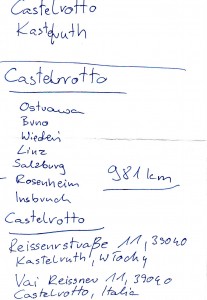 Castelrotto
Kastelruth
Castelrotto
Ostrawa
Brno
Wiedeń
Linz
Salzburg
Rosenheim
981 km
Insbruck
Castelrotto
Reissenrstraße 11, 39040
Kastelruth, Włochy
Vai Reissner 11, 39040
Castelrotto, Italia